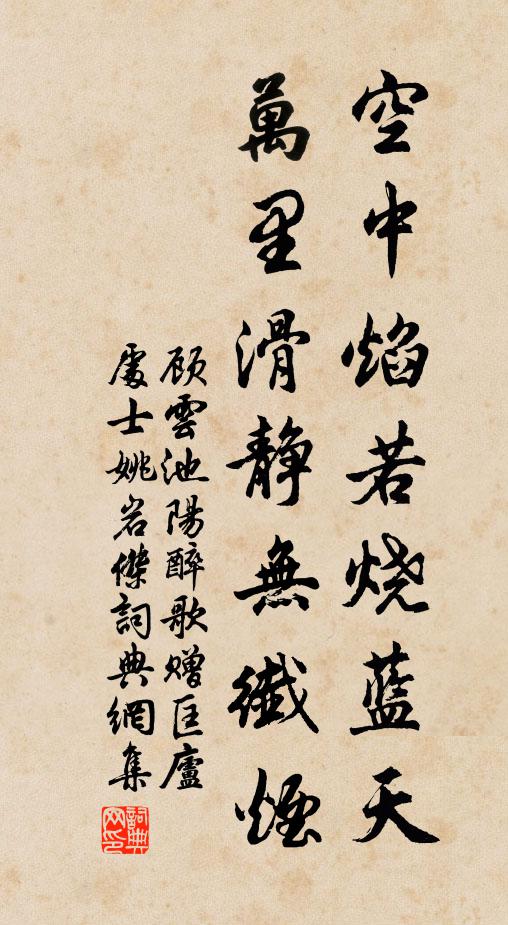 空中焰若烧蓝天
萬里滑静無纖煙
顾雲池陽醉歌赠匡廬
處士姚岩傑詞典網集
詞典网印